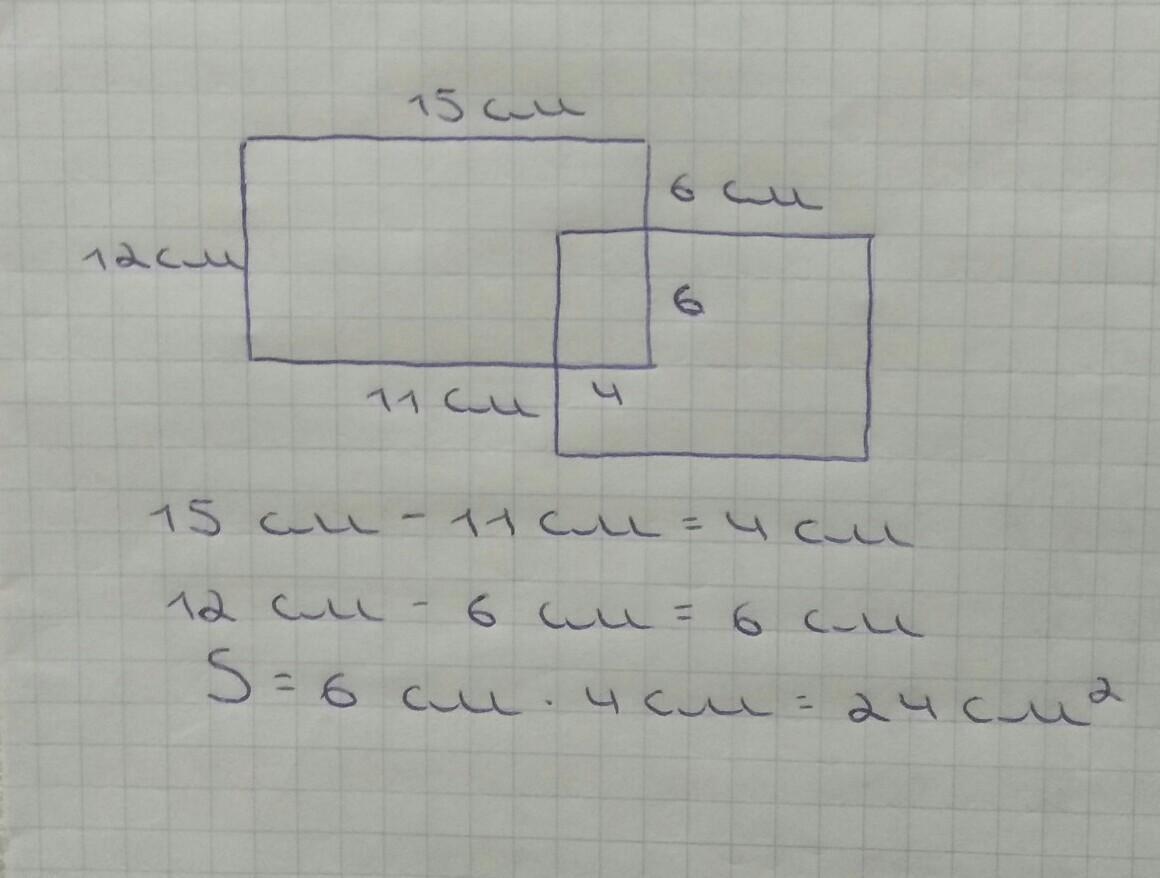 15 см
6 см
12 см
6
11 см
4
15 см - 11 см = 4 см
12 см - 6 см = 6 см
S = 6 см · 4 см = 24 см²